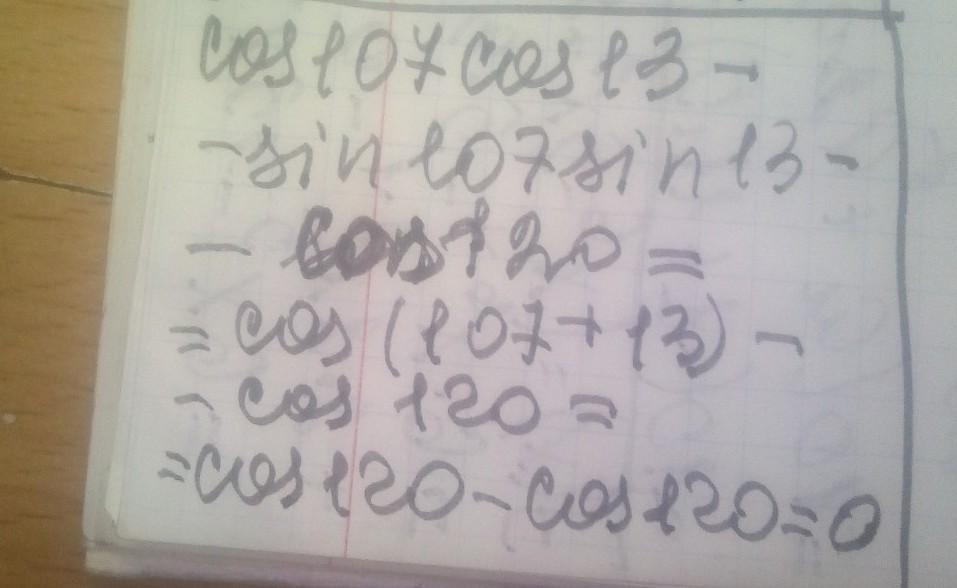 cos107cos13-
-sin107sin13-
- cos120=
=cos(107+13)-
-cos120=
=cos120-cos120=0